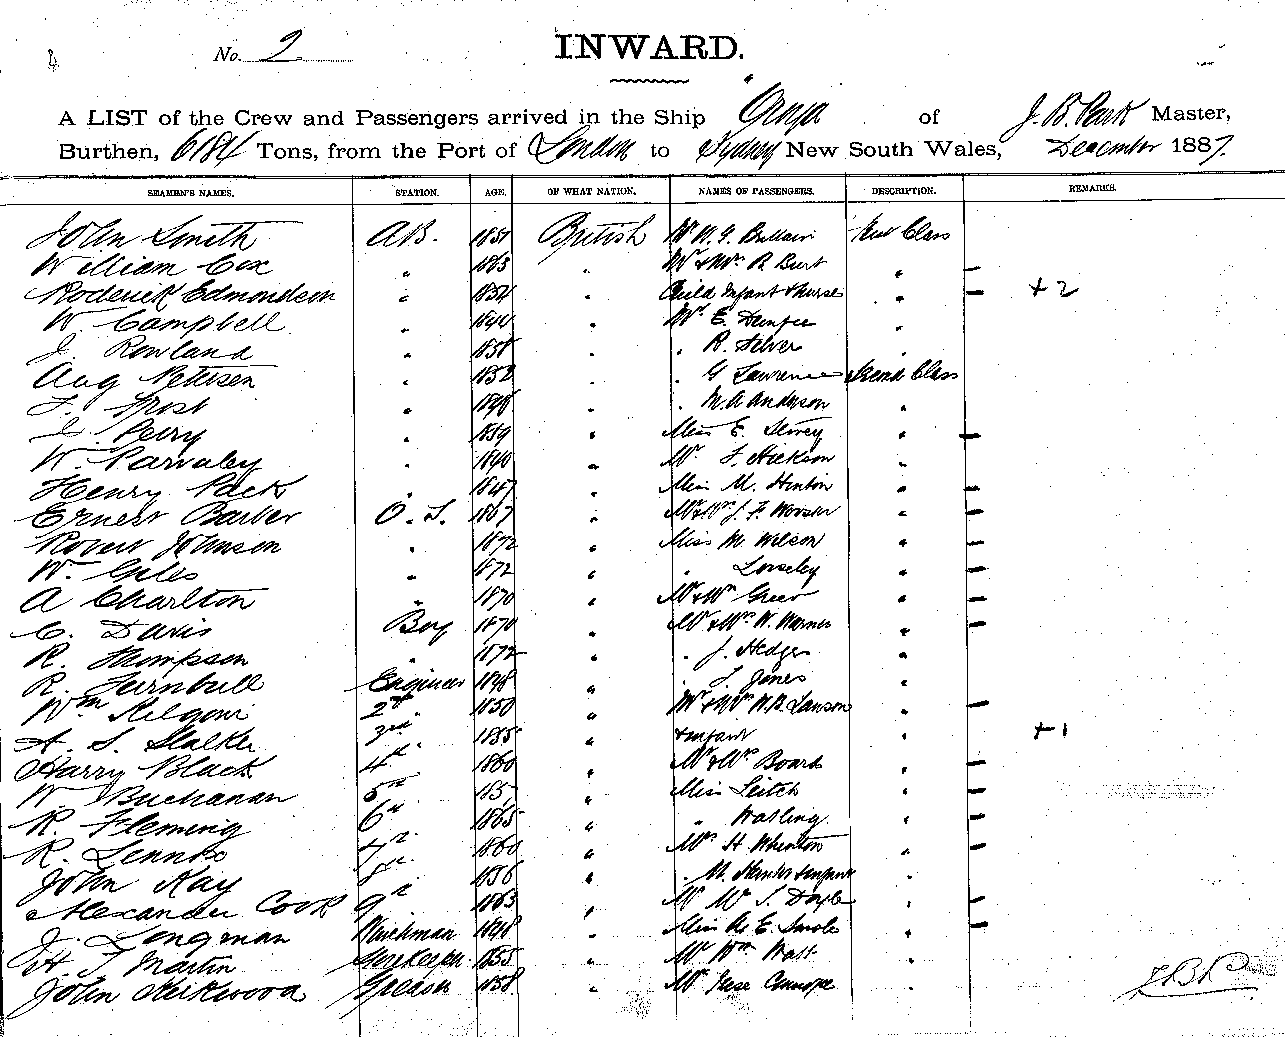 No. 2
INWARD.
A LIST of the Crew and Passengers arrived in the Ship of J. B. Park Master,
Burthen, 6184 Tons, from the Port of London to Sydney New South Wales, December 1887.
SEAMEN'S NAMES. STATION. AGE. OF WHAT NATION. NAMES OF PASSENGERS. DESCRIPTION. REMARKS.
John Smith A.B. 1851 British Mr W. G. First Class
William Cox " 1863 " Mr & Mrs R. Burt " –
Roderick Edmondson " 1854 " Child Infant & nurse " – + 2
W. Campbell " 1844 " Mr E. "
J. Rowland " 1858 " " R. Silver "
Aug " 1852 " " G Lawrence Second Class
F. Frost " " " M. A. Anderson "
J. Perry " 1859 " Miss E. " –
W. " 1840 " Mr F. Hickson "
Henry Pack " 1847 " Miss M. Hinton " –
Ernest Barber O.S. 1867 " Mr & Mrs J. F. " –
Robert Johnson " 1872 " Miss M. Wilson " –
W. Giles " 1872 " " " –
A Charlton " 1870 " Mr & Mrs " –
C. Davis Boy 1870 " Mr & Mrs W. Warner " –
R. Thompson " 1872 " " J. Hedges "
R. Turnbull Engineer 1848 " " Jones "
Wm Kilgour 2nd " 1850 " Mr & Mrs W. B. Lawson " –
A. S. Stalker 3rd " 1855 " & infant " + 1
Harry Black 4th 1860 " Mr & Mrs Board " –
W. Buchanan 5th " Miss Leitch " –
R. Fleming 6th 1865 " " Watling " –
R. Lennox 7th 1860 " Mrs H. " –
John Kay 8th 1856 " " M. & infant "
Alexander Cook 9th 1863 " Mr W. S. Doyle " –
J. Longman 1848 " Miss E. " –
H. J. Martin Storekeeper 1855 " Mr Wm Watt "
John Kirkwood Greaser 1858 " Mr "
J.B.P.